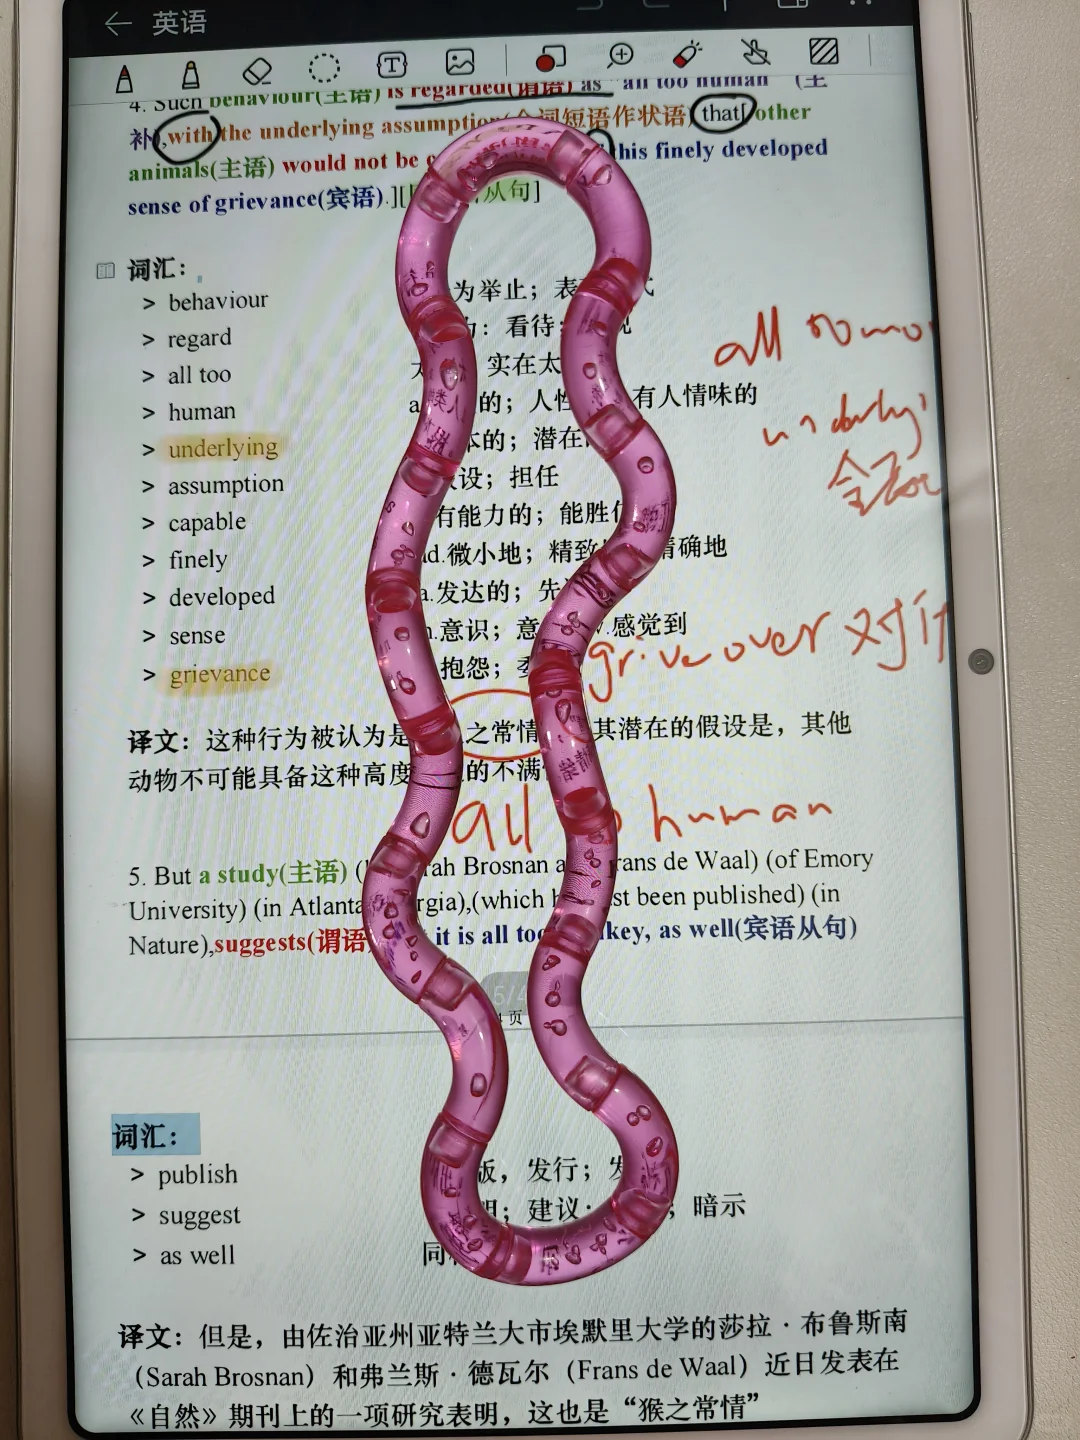 英语
4. Such behaviour(主语) is regarded(谓语) as "all too human (主
补),with the underlying assumption 词短语作状语) that[other
animals(主语) would not be this finely developed
sense of grievance(宾语).][ 从句]
词汇：
> behaviour 为举止；
> regard 看待；
> all too 实在太
> human 的；人性 有人情味的
> underlying 本的；潜在
> assumption 设；担任
> capable 有能力的；能胜
> finely ad.微小地；精致 精确地
> developed a.发达的；先
> sense n.意识；意 v.感觉到
> grievance 抱怨；
all
underlyi
grive over 对
译文：这种行为被认为是 之常情 其潜在的假设是，其他
动物不可能具备这种高度 的不满
all human
5. But a study(主语) ( Sarah Brosnan a Frans de Waal) (of Emory
University) (in Atlanta rgia),(which st been published) (in
Nature),suggests(谓语) it is all too key, as well(宾语从句)
5/4
页
词汇：
> publish 版，发行；
> suggest 明；建议； ；暗示
> as well 同
译文：但是，由佐治亚州亚特兰大市埃默里大学的莎拉·布鲁斯南
（Sarah Brosnan）和弗兰斯·德瓦尔（Frans de Waal）近日发表在
《自然》期刊上的一项研究表明，这也是“猴之常情”